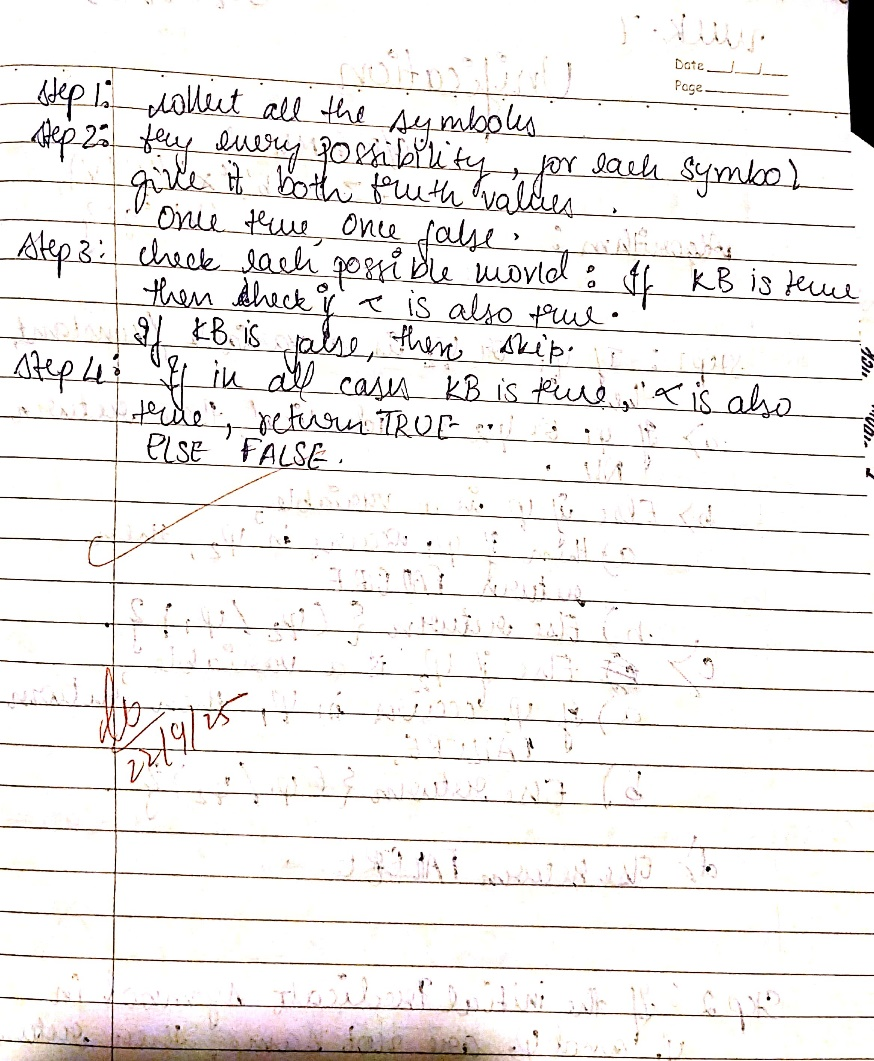 Date
Page
Step 1: collect all the symbols
Step 2: try every possibility, for each symbol
give it both truth values.
Once true, once false.
Step 3: check each possible world: If KB is true
then check if α is also true.
If KB is false, then skip.
Step 4: If in all cases KB is true, α is also
true, return TRUE
ELSE FALSE.
22/9/25